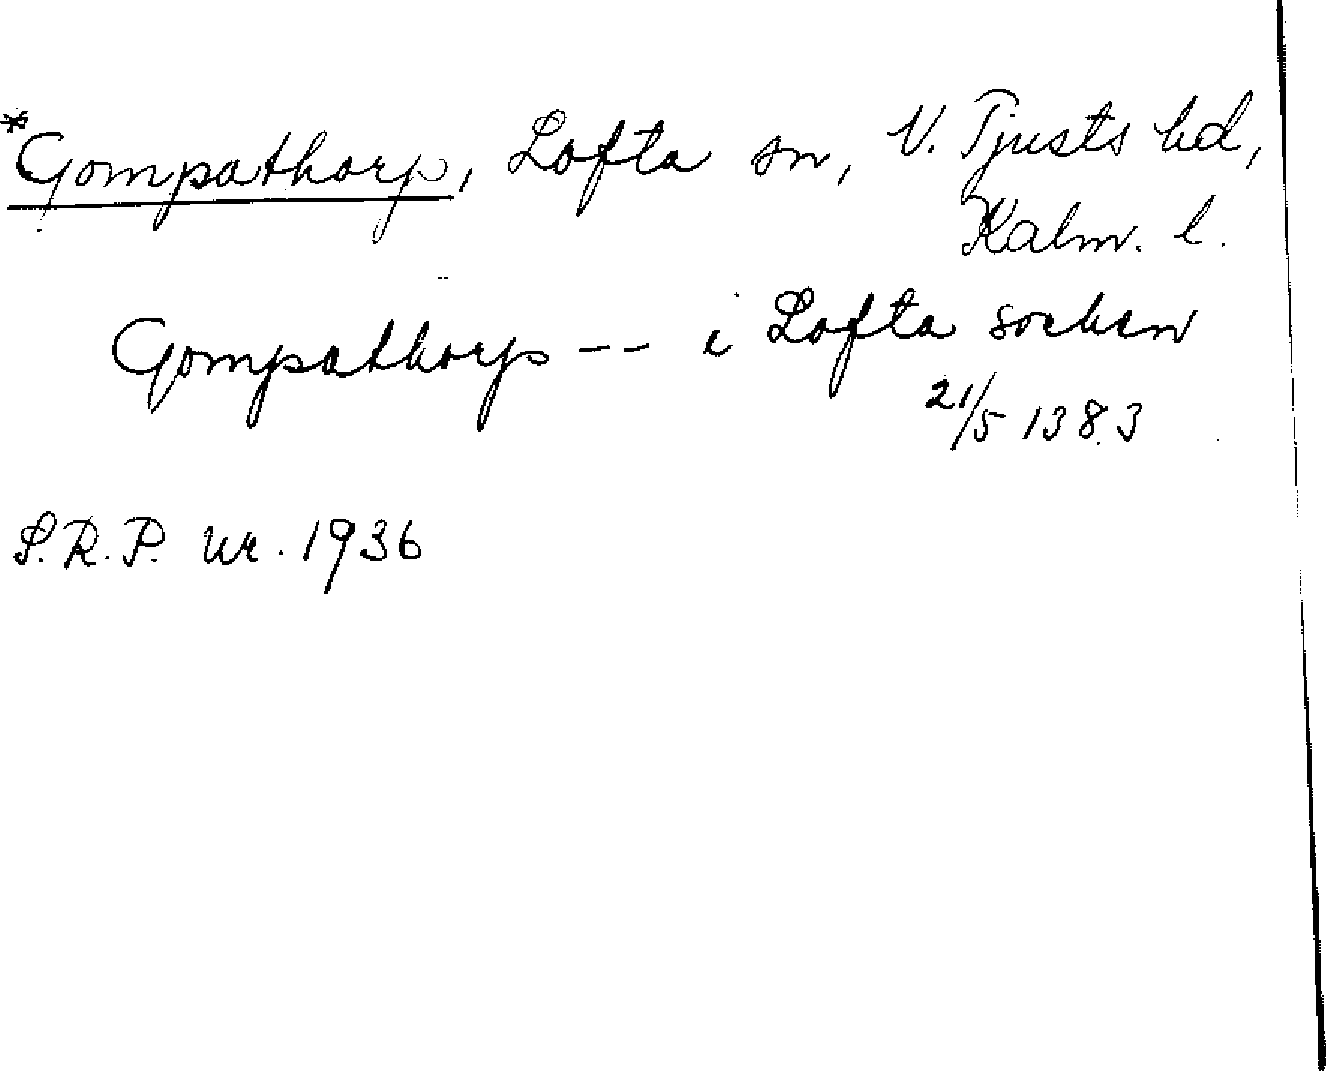 *Gompathorp, Lofta sn, V. Tjusts hd,
Kalm. l.
Gompathorp -- i Lofta sochen
21/5 1383
S.R.P. nr. 1936